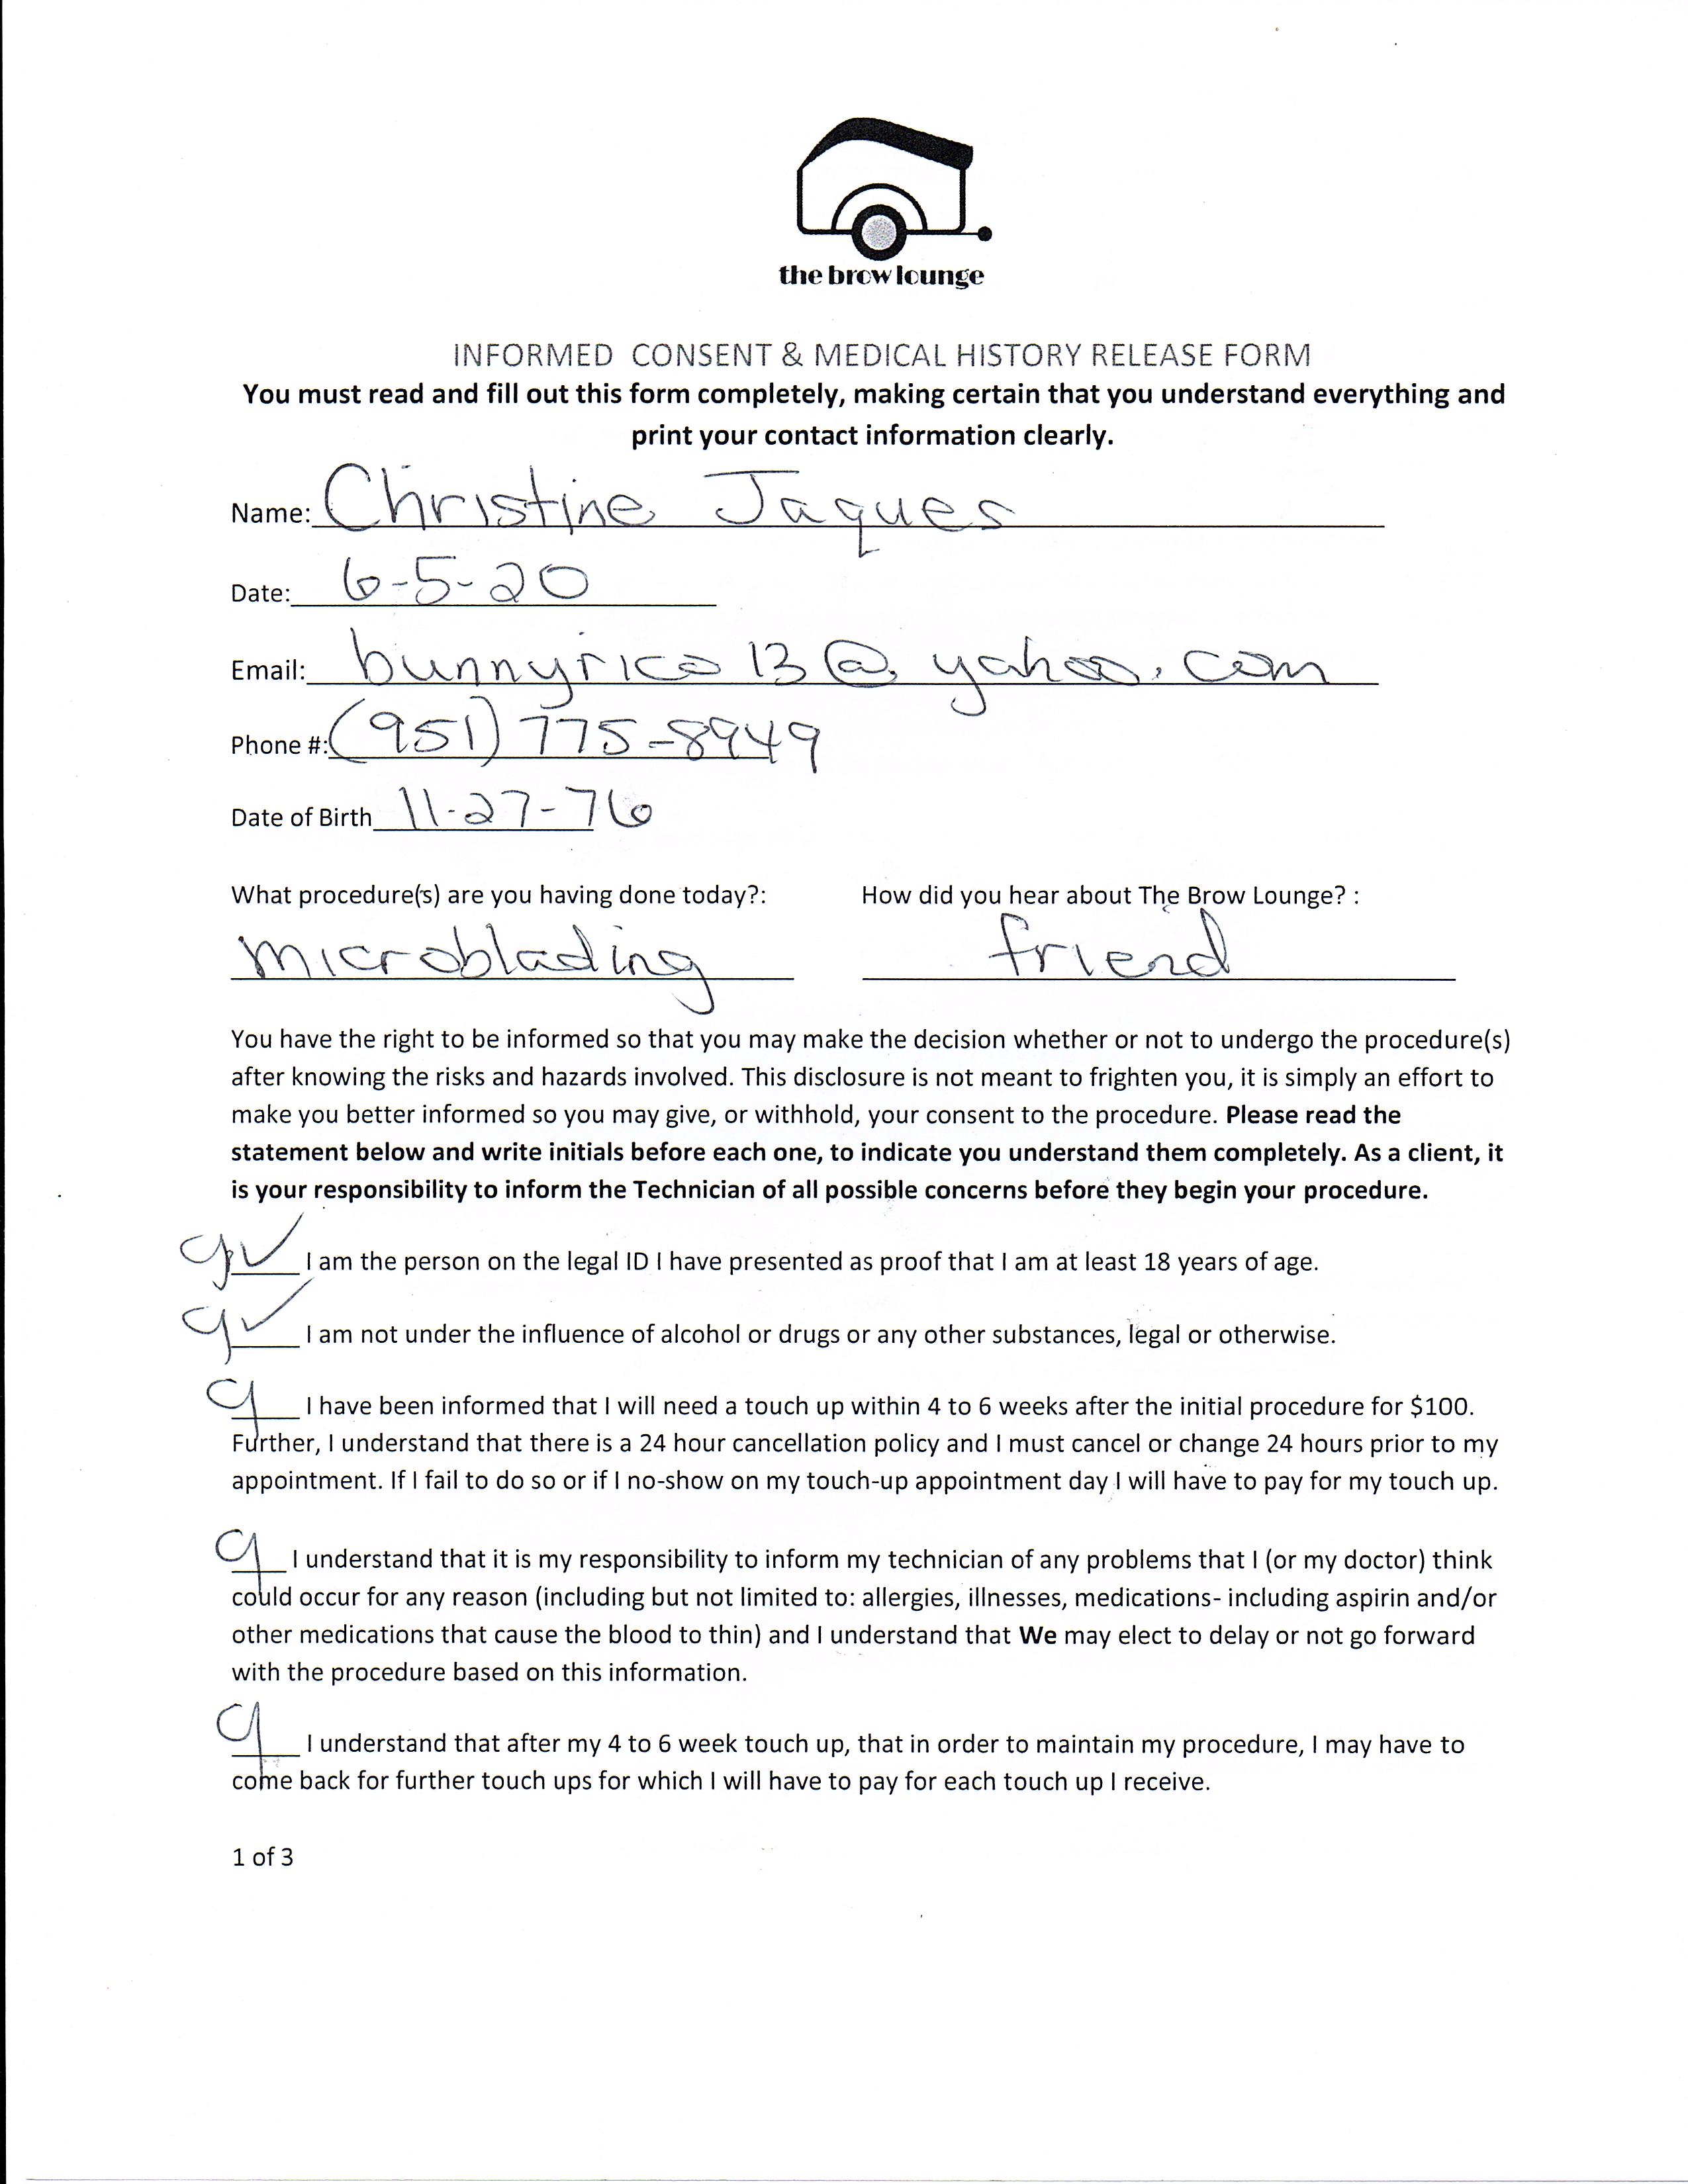 the brow lounge
INFORMED CONSENT & MEDICAL HISTORY RELEASE FORM
You must read and fill out this form completely, making certain that you understand everything and
print your contact information clearly.
Name: Christine Jaques
Date: 6-5-20
Email: bunnyrico13@yahoo.com
Phone #: (951) 775-8949
Date of Birth 11-27-76
What procedure(s) are you having done today?: How did you hear about The Brow Lounge? :
microblading friend
You have the right to be informed so that you may make the decision whether or not to undergo the procedure(s)
after knowing the risks and hazards involved. This disclosure is not meant to frighten you, it is simply an effort to
make you better informed so you may give, or withhold, your consent to the procedure. Please read the
statement below and write initials before each one, to indicate you understand them completely. As a client, it
is your responsibility to inform the Technician of all possible concerns before they begin your procedure.
CJ ✓ I am the person on the legal ID I have presented as proof that I am at least 18 years of age.
CJ ✓ I am not under the influence of alcohol or drugs or any other substances, legal or otherwise.
CJ I have been informed that I will need a touch up within 4 to 6 weeks after the initial procedure for $100.
Further, I understand that there is a 24 hour cancellation policy and I must cancel or change 24 hours prior to my
appointment. If I fail to do so or if I no-show on my touch-up appointment day I will have to pay for my touch up.
CJ I understand that it is my responsibility to inform my technician of any problems that I (or my doctor) think
could occur for any reason (including but not limited to: allergies, illnesses, medications- including aspirin and/or
other medications that cause the blood to thin) and I understand that We may elect to delay or not go forward
with the procedure based on this information.
CJ I understand that after my 4 to 6 week touch up, that in order to maintain my procedure, I may have to
come back for further touch ups for which I will have to pay for each touch up I receive.
1 of 3